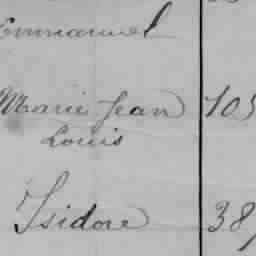 Emmanuel
Marie Jean 105
Louis
Isidore 38